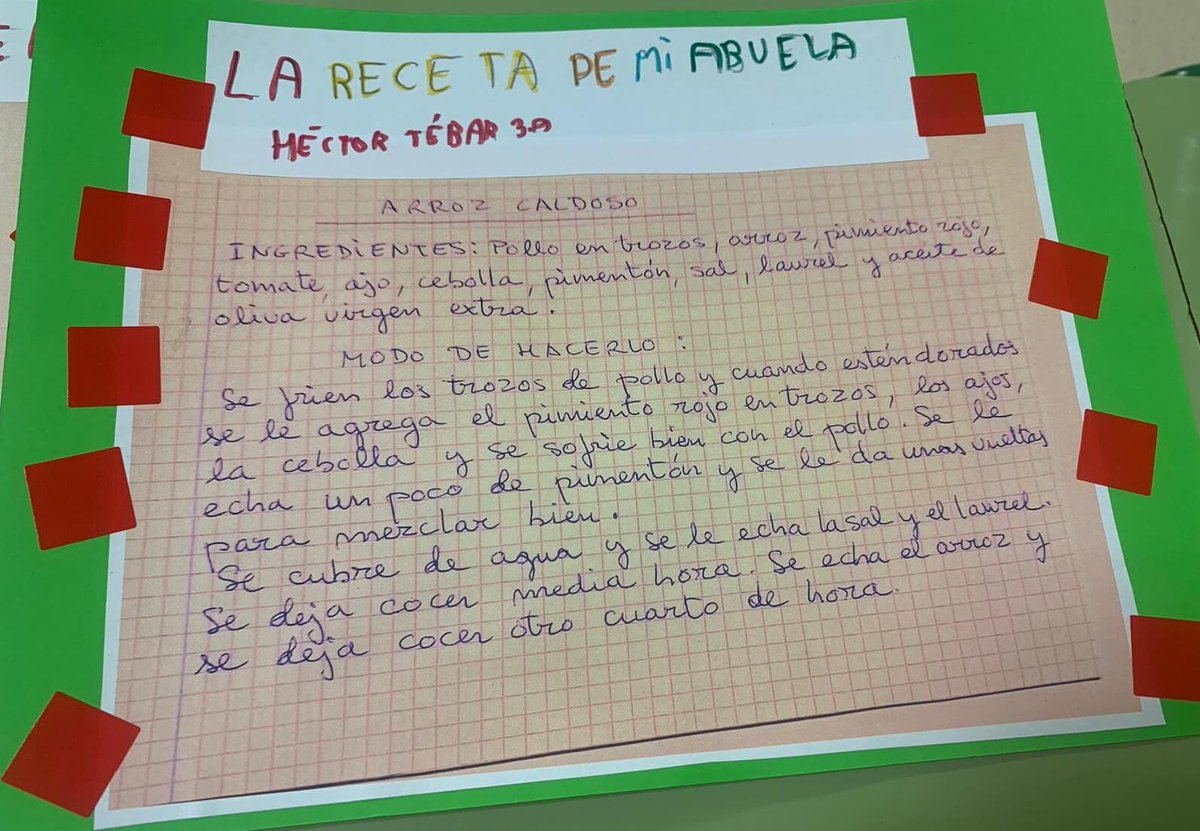 LA RECETA DE Mi ABUELA
HÉCTOR TÉBAR 3A
ARROZ CALDOSO
INGREDIENTES: Pollo en trozos, arroz, pimiento rojo,
tomate, ajo, cebolla, pimentón, sal, laurel y aceite de
oliva virgen extra.
MODO DE HACERLO:
Se frien los trozos de pollo y cuando estén dorados
se le agrega el pimiento rojo en trozos, los ajos,
la cebolla y se sofrie bien con el pollo. Se le
echa un poco de pimentón y se le da unas vueltas
para mezclar bien.
Se cubre de agua y se le echa la sal y el laurel.
Se deja cocer media hora. Se echa el arroz y
se deja cocer otro cuarto de hora.